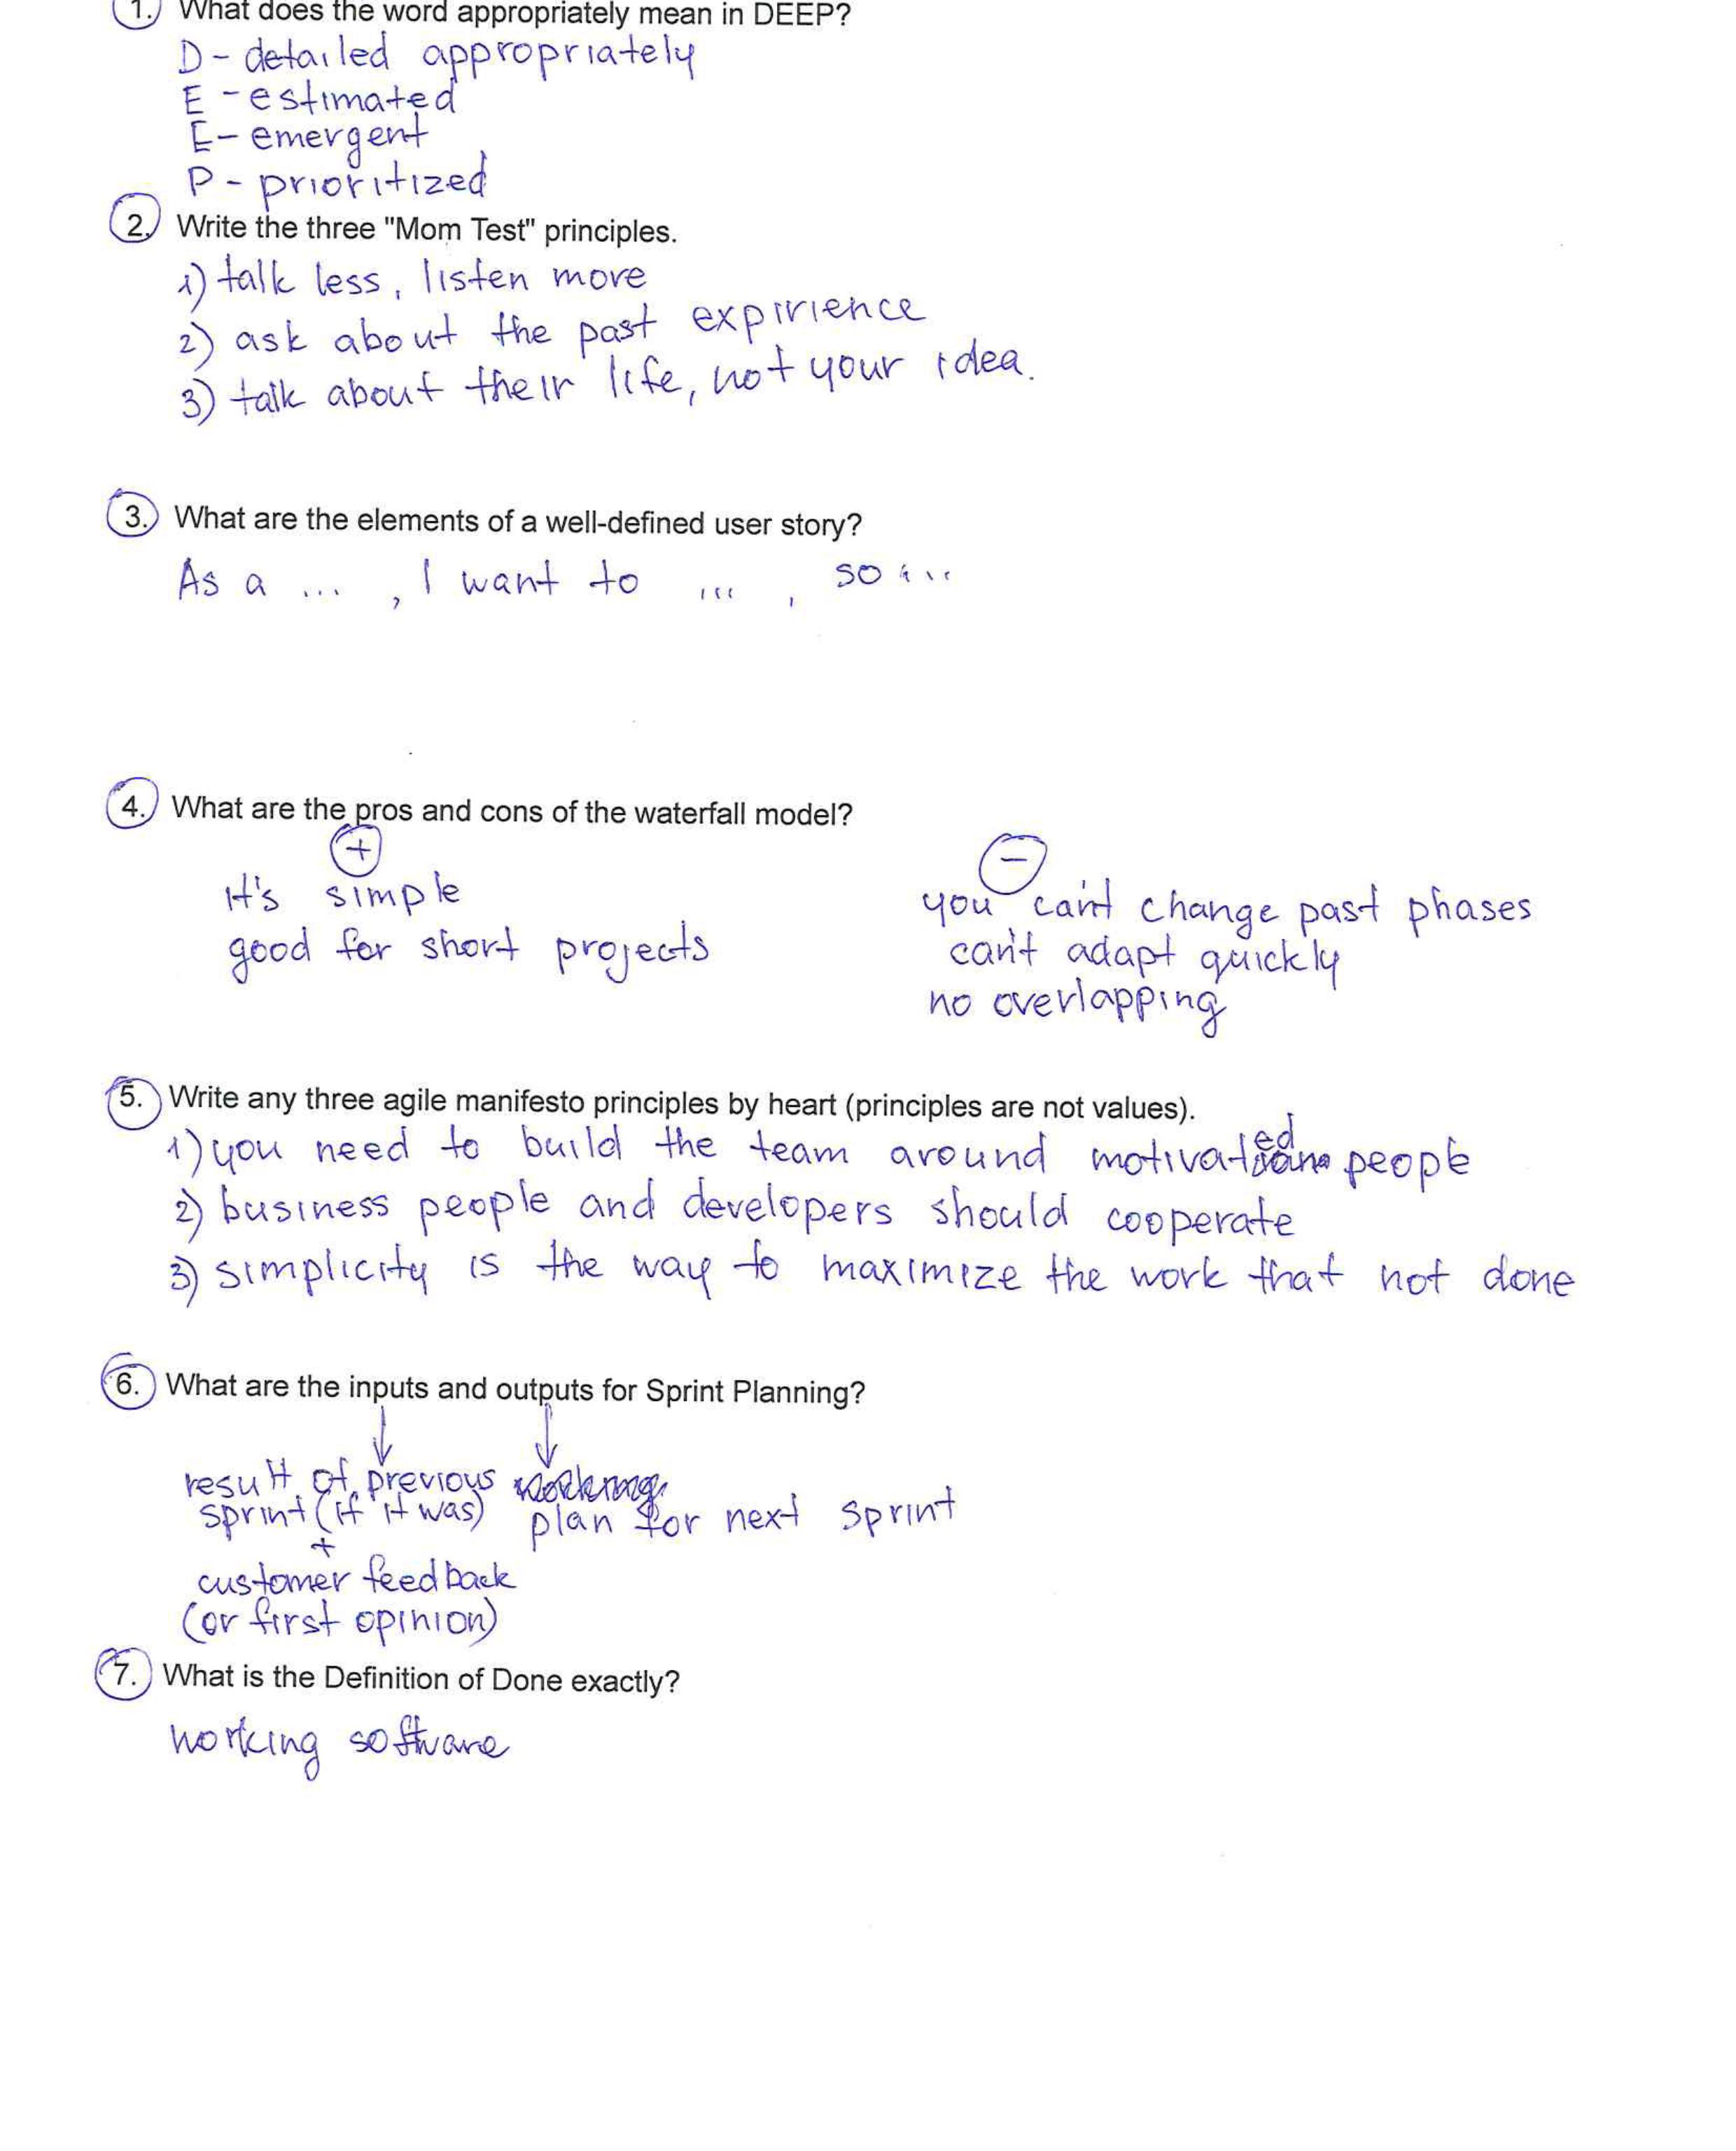 1. What does the word appropriately mean in DEEP?
D - detailed appropriately
E - estimated
E - emergent
P - prioritized
2. Write the three "Mom Test" principles.
1) talk less, listen more
2) ask about the past expirience
3) talk about their life, not your idea.
3. What are the elements of a well-defined user story?
As a ... , I want to ... , so ...
4. What are the pros and cons of the waterfall model?
+
-
It's simple
you can't change past phases
good for short projects
can't adapt quickly
no overlapping
5. Write any three agile manifesto principles by heart (principles are not values).
1) you need to build the team around motivated people
2) business people and developers should cooperate
3) simplicity is the way to maximize the work that not done
6. What are the inputs and outputs for Sprint Planning?
result of previous
sprint (if it was) plan for next sprint
+
customer feedback
(or first opinion)
7. What is the Definition of Done exactly?
working software